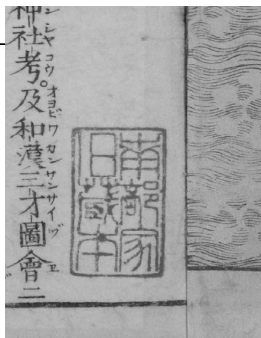 神社考。及和漢三才圖會二
ンシヤコウ オヨビ ワ カン サン サイ ヅ ヱ
南部家
旧藏本